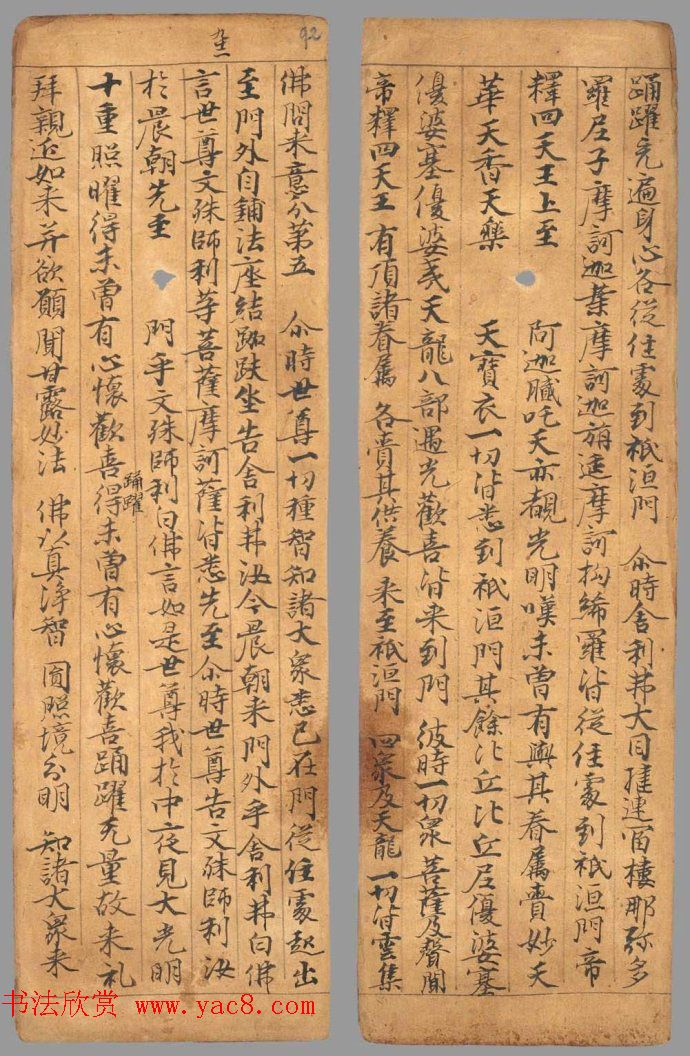 踊躍充遍身心各從住處到祇洹門 尒時舍利弗大目揵連富樓那弥多
羅尼子摩訶迦葉摩訶迦旃延摩訶拘絺羅皆從住處到祇洹門帝
釋四天王上至 阿迦膩吒天亦覩光明嘆未曾有與其眷属賷妙天
華天香天樂 天寶衣一切皆悉到祇洹門其餘比丘比丘尼優婆塞
優婆塞優婆夷天龍八部遇光歡喜皆来到門 彼時一切衆 菩薩及聲聞
帝釋四天王 有頂諸眷属 各賷其供養 来至祇洹門 四衆及天龍 一切皆雲集
92
佛問来意分第五 尒時世尊一切種智知諸大衆悉已在門從住處起出
至門外自鋪法座結跏趺坐告舍利弗汝今晨朝来門外乎舍利弗白佛
言世尊文殊師利等菩薩摩訶薩皆悉先至尒時世尊告文殊師利汝
於晨朝先至 門乎文殊師利白佛言如是世尊我於中夜見大光明
十重照曜得未曾有心懷歡喜得未曾有心懷歡喜踊躍无量故来礼
踊躍
拜親近如来并欲願聞甘露妙法 佛以真淨智 圓照境分明 知諸大衆来
书法欣赏 www.yac8.com